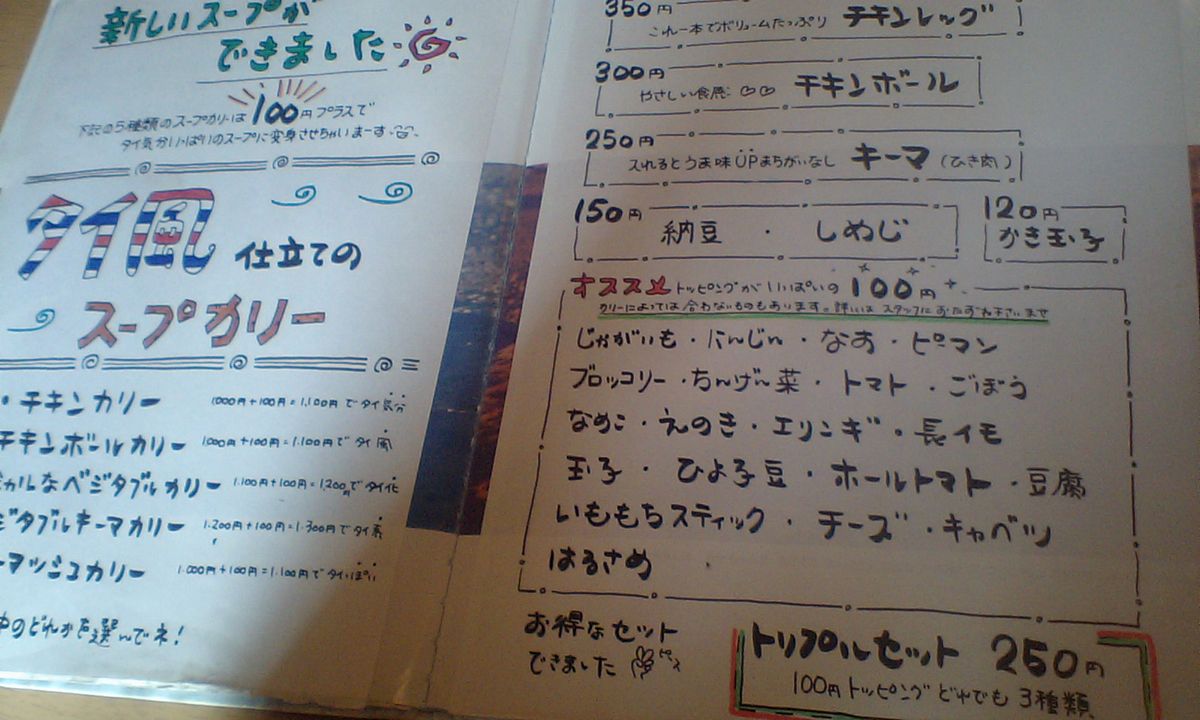 新しいスープが
できました
100円プラスで
下記の5種類のスープカリーは
タイ気分いっぱいのスープに変身させちゃいまーす
タイ風 仕立ての
スープカリー
・チキンカリー 1000円+100円=1,100円でタイ気分
チキンボールカリー 1000円+100円=1,100円でタイ風
カルなベジタブルカリー 1,100円+100円=1,200円でタイ化
ジタブルキーマカリー 1,200円+100円=1,300円でタイ系
ーマッシュカリー 1,000円+100円=1,100円でタイっぽい
中のどれかを選んでネ!
350円
これ一本でボリュームたっぷり チキンレッグ
300円
やさしい食感 チキンボール
250円
入れるとうま味UPまちがいなし キーマ (ひき肉)
150円
納豆 ・ しめじ
120円
かき玉子
オススメ トッピングがいっぱいの 100円
カリーによっては合わないものもあります。詳しくは スタッフにおたずね下さいませ
じゃがいも・にんじん・なす・ピーマン
ブロッコリー・ちんげん菜・トマト・ごぼう
なめこ・えのき・エリンギ・長イモ
玉子・ひよ子豆・ホールトマト・豆腐
いももちスティック・チーズ・キャベツ
はるさめ
お得なセット
できました ピース
トリプルセット 250円
100円トッピングどれでも3種類